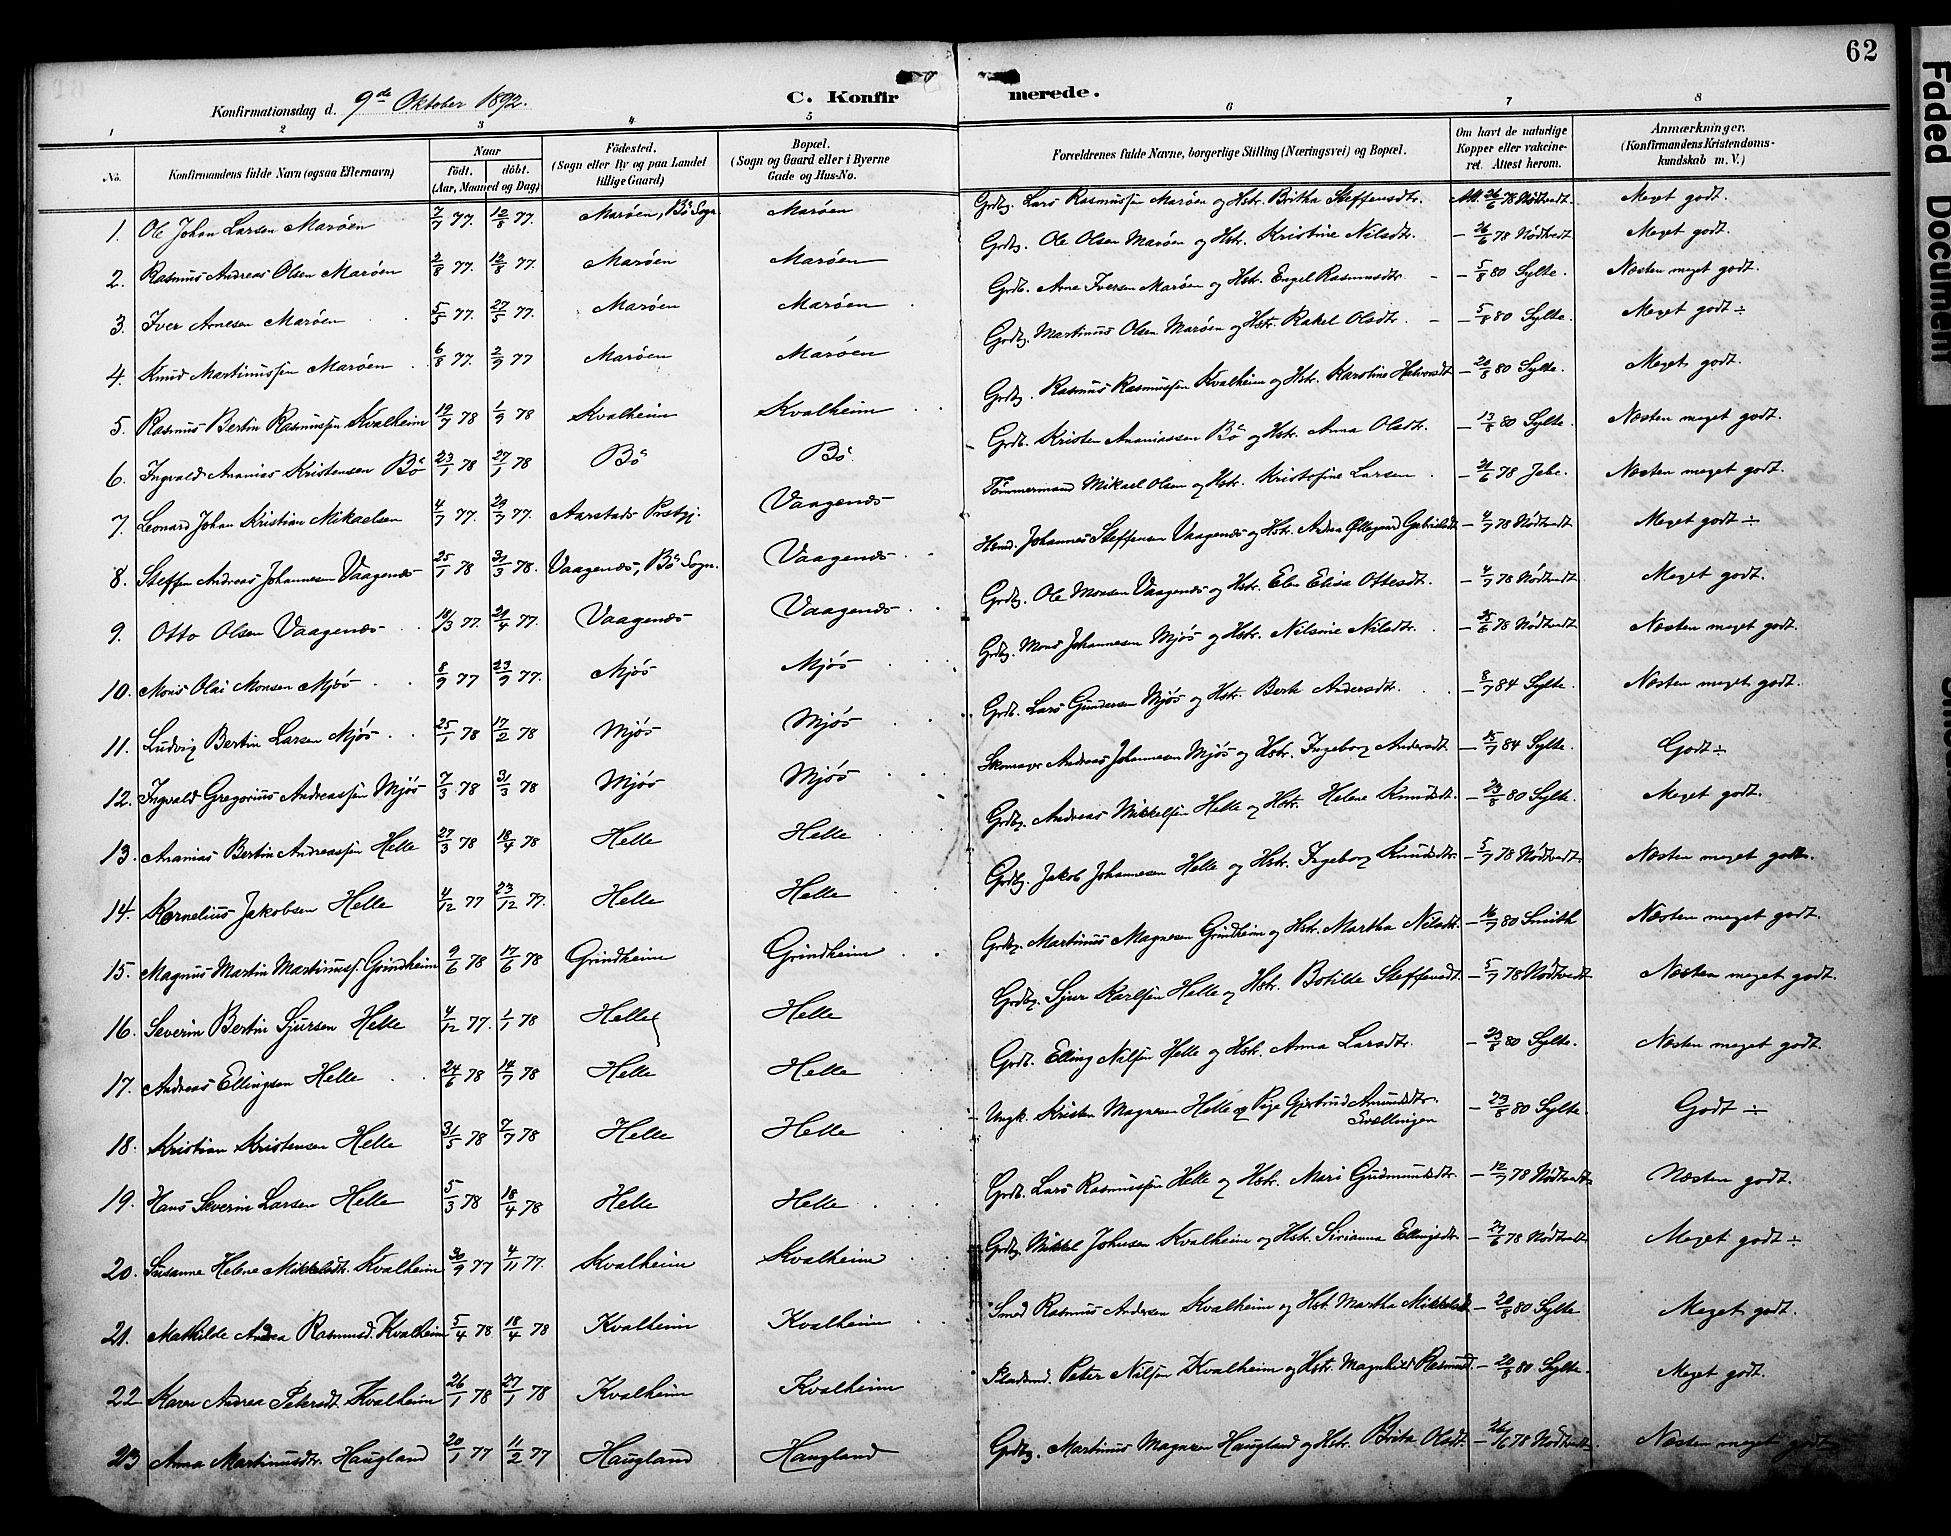 62
Konfirmationsdag d. 9de Oktober 1892.
C. Konfirmerede.
1 2 3 4 5 6 7 8
No.
Konfirmandens fulde Navn (ogsaa Efternavn)
Naar
født. døbt.
(Aar, Maaned og Dag)
Fødested.
(Sogn eller By og paa Landet
tillige Gaard)
Bopæl.
(Sogn og Gaard eller i Byerne
Gade og Hus-No.
Forældrenes fulde Navne, borgerlige Stilling (Næringsvei) og Bopæl.
Om havt de naturlige
Kopper eller vakcine-
ret. Attest herom.
Anmærkninger.
(Konfirmandens Kristendoms-
kundskab m. V.)
1. Ole Johan Larsen Marøen 7/7 77. 12/8 77. Marøen, Bø Sogn Marøen Grdbr. Lars Rasmussen Marøen og Hstr. Britha Steffensdtr. Att. 26/6 78 Nødtvedt. Meget godt.
2. Rasmus Andreas Olsen Marøen 2/8 77. 12/8 77. Marøen Marøen Grdbr. Ole Olsen Marøen og Hstr. Kristine Nilsdtr. - 26/6 78 Nødtvedt Meget godt.
3. Iver Arnesen Marøen 5/5 77. 27/5 77. Marøen Marøen Grdb. Arne Iversen Marøen og Hstr. Engel Rasmusdtr - 5/8 80 Sylte. Næsten meget godt.
4. Knud Martinussen Marøen 6/8 77. 2/9 77 Marøen Marøen Grdbr. Martinus Olsen Marøen og Hstr. Rakel Olsdtr. - 5/8 80 Sylte. Meget godt ÷
5. Rasmus Bertin Rasmussen Kvalheim 19/7 78 1/9 78 Kvalheim Kvalheim Grdbr. Rasmus Rasmussen Kvalheim og Hstr. Karoline Halvorsdt - 20/8 80 Sylte. Meget godt.
6. Ingvald Ananias Kristensen Bø 23/1 78 27/1 78 Bø Bø Grdb. Kristen Ananiassen Bø og Hstr. Anna Olsdtr. - 13/8 80 Sylte. Næsten meget godt.
7. Leonard Johan Kristian Mikaelsen 4/7 77. 29/7 77. Aarstads Prestgj. Vaagenæs Tømmermand Mikael Olsen og Hstr. Kristofine Larsen - 21/6 78 Næsten meget godt.
8. Steffen Andreas Johannesen Vaagenæs 25/1 78 31/3 78. Vaagenæs, Bø Sogn. Vaagenæs Johannes Steffensen Vaagenæs og Hstr. Andrea Øllegaard Gabrielsdt - 4/7 78 Nødtvedt Meget godt ÷
9. Otto Olsen Vaagenæs 10/3 77. 21/4 77. Vaagenæs Vaagenæs Grdbr. Ole Monsen Vaagenæs og Hstr. Elen Elisa Ottesdt. - 4/7 78 Nødtvedt Meget godt.
10. Mons Olai Monsen Mjøs 8/9 77 23/9 77. Mjøs Mjøs Grdbr. Mons Johannesen Mjøs og Hstr. Nilsine Nilsdtr. - 25/6 78 Nødtvedt Næsten meget godt.
11. Ludvig Bertin Larsen Mjøs 25/1 78 17/2 78 Mjøs Mjøs Grdb. Lars Gundersen Mjøs og Hstr. Berte Andersdtr. - 8/7 84 Sylte. Næsten meget godt.
12. Ingvald Gregorius Andreassen Mjøs 7/3 78 31/3 78 Mjøs Mjøs Skomager Andreas Johannesen Mjøs og Hstr. Ingeborg Andersdt - 15/7 84 Sylte. Godt ÷
13. Ananias Bertin Andreassen Helle 27/3 78 18/4 78 Helle Helle Grdbr. Andreas Mikkelsen Helle og Hstr. Helene Knudsdt. - 23/8 80 Sylte. Meget godt.
14. Kornelius Jakobsen Helle 4/12 77 23/12 77. Helle Helle Grdbr. Jakob Johannesen Helle og Hstr. Ingeborg Knudsdtr. - 5/7 78 Nødtvedt Næsten meget godt.
15. Magnus Martin Martinuss. Grindheim 9/6 78 17/6 78 Grindheim Grindheim Grdbr. Martinus Magnesen Grindheim og Hstr. Martha Nilsdt. - 16/7 80 Smith Næsten meget godt.
16. Severin Bertin Sjursen Helle 4/12 77. 1/1 78 Helle Helle Grdbr. Sjur Karlsen Helle og Hstr. Botilde Steffensdt. - 5/7 78 Nødtvedt Næsten meget godt.
17. Andreas Ellingsen Helle 24/6 78 14/7 78 Helle Helle Grdb. Elling Nilsen Helle og Hstr. Anna Larsdtr. - 23/8 80 Sylte. Næsten meget godt.
18. Kristian Kristensen Helle 31/5 78 7/7 78 Helle Helle Ungk. Kristen Magnesen Helle og Pige Gjertrud Amundsdtr. - 23/8 80 Sylte. Godt ÷
19. Hans Severin Larsen Helle 5/3 78 18/4 78 Helle Helle Grdb. Lars Rasmussen Helle og Hstr. Mari Gudmundsdtr. - 12/7 78 Nødtvedt Næsten godt.
20. Susanne Helene Mikkelsdtr. Kvalheim 30/9 77 4/11 77. Kvalheim Kvalheim Grdbr. Mikkel Johnsen Kvalheim og Hstr. Sirianna Ellingsdtr. - 27/6 78 Nødtvedt Meget godt ÷
21. Mathilde Andrea Rasmusd. Kvalheim 5/4 78 18/4 78 Kvalheim Kvalheim Smed Rasmus Andersen Kvalheim og Hst. Martha Mikkelsdt - 20/8 80 Sylte. Meget godt.
22 Karen Andrea Petersdt. Kvalheim 26/1 78 27/1 78 Kvalheim Kvalheim Pladsmd. Peter Nilsen Kvalheim og Hstr. Magnhild Rasmusd. - 20/8 80 Sylte. Meget godt.
23 Anna Martinusdtr. Haugland 20/1 77 11/2 77 Haugland Haugland Grdbr. Martinus Magnesen Haugland og Hstr. Brita Olsdt. - 26/6 78 Nødtvedt. Næsten meget godt
Faded Document